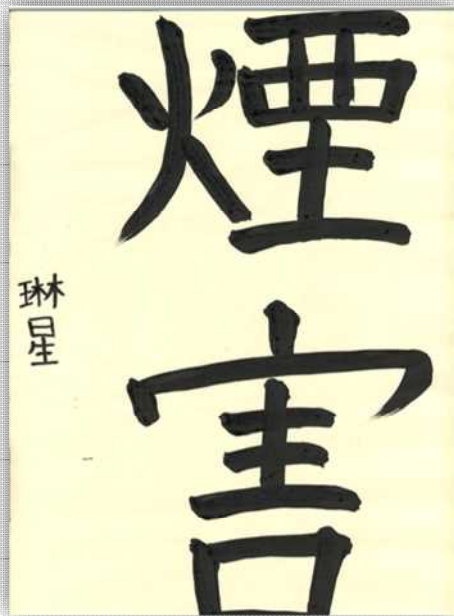 煙害
琳星